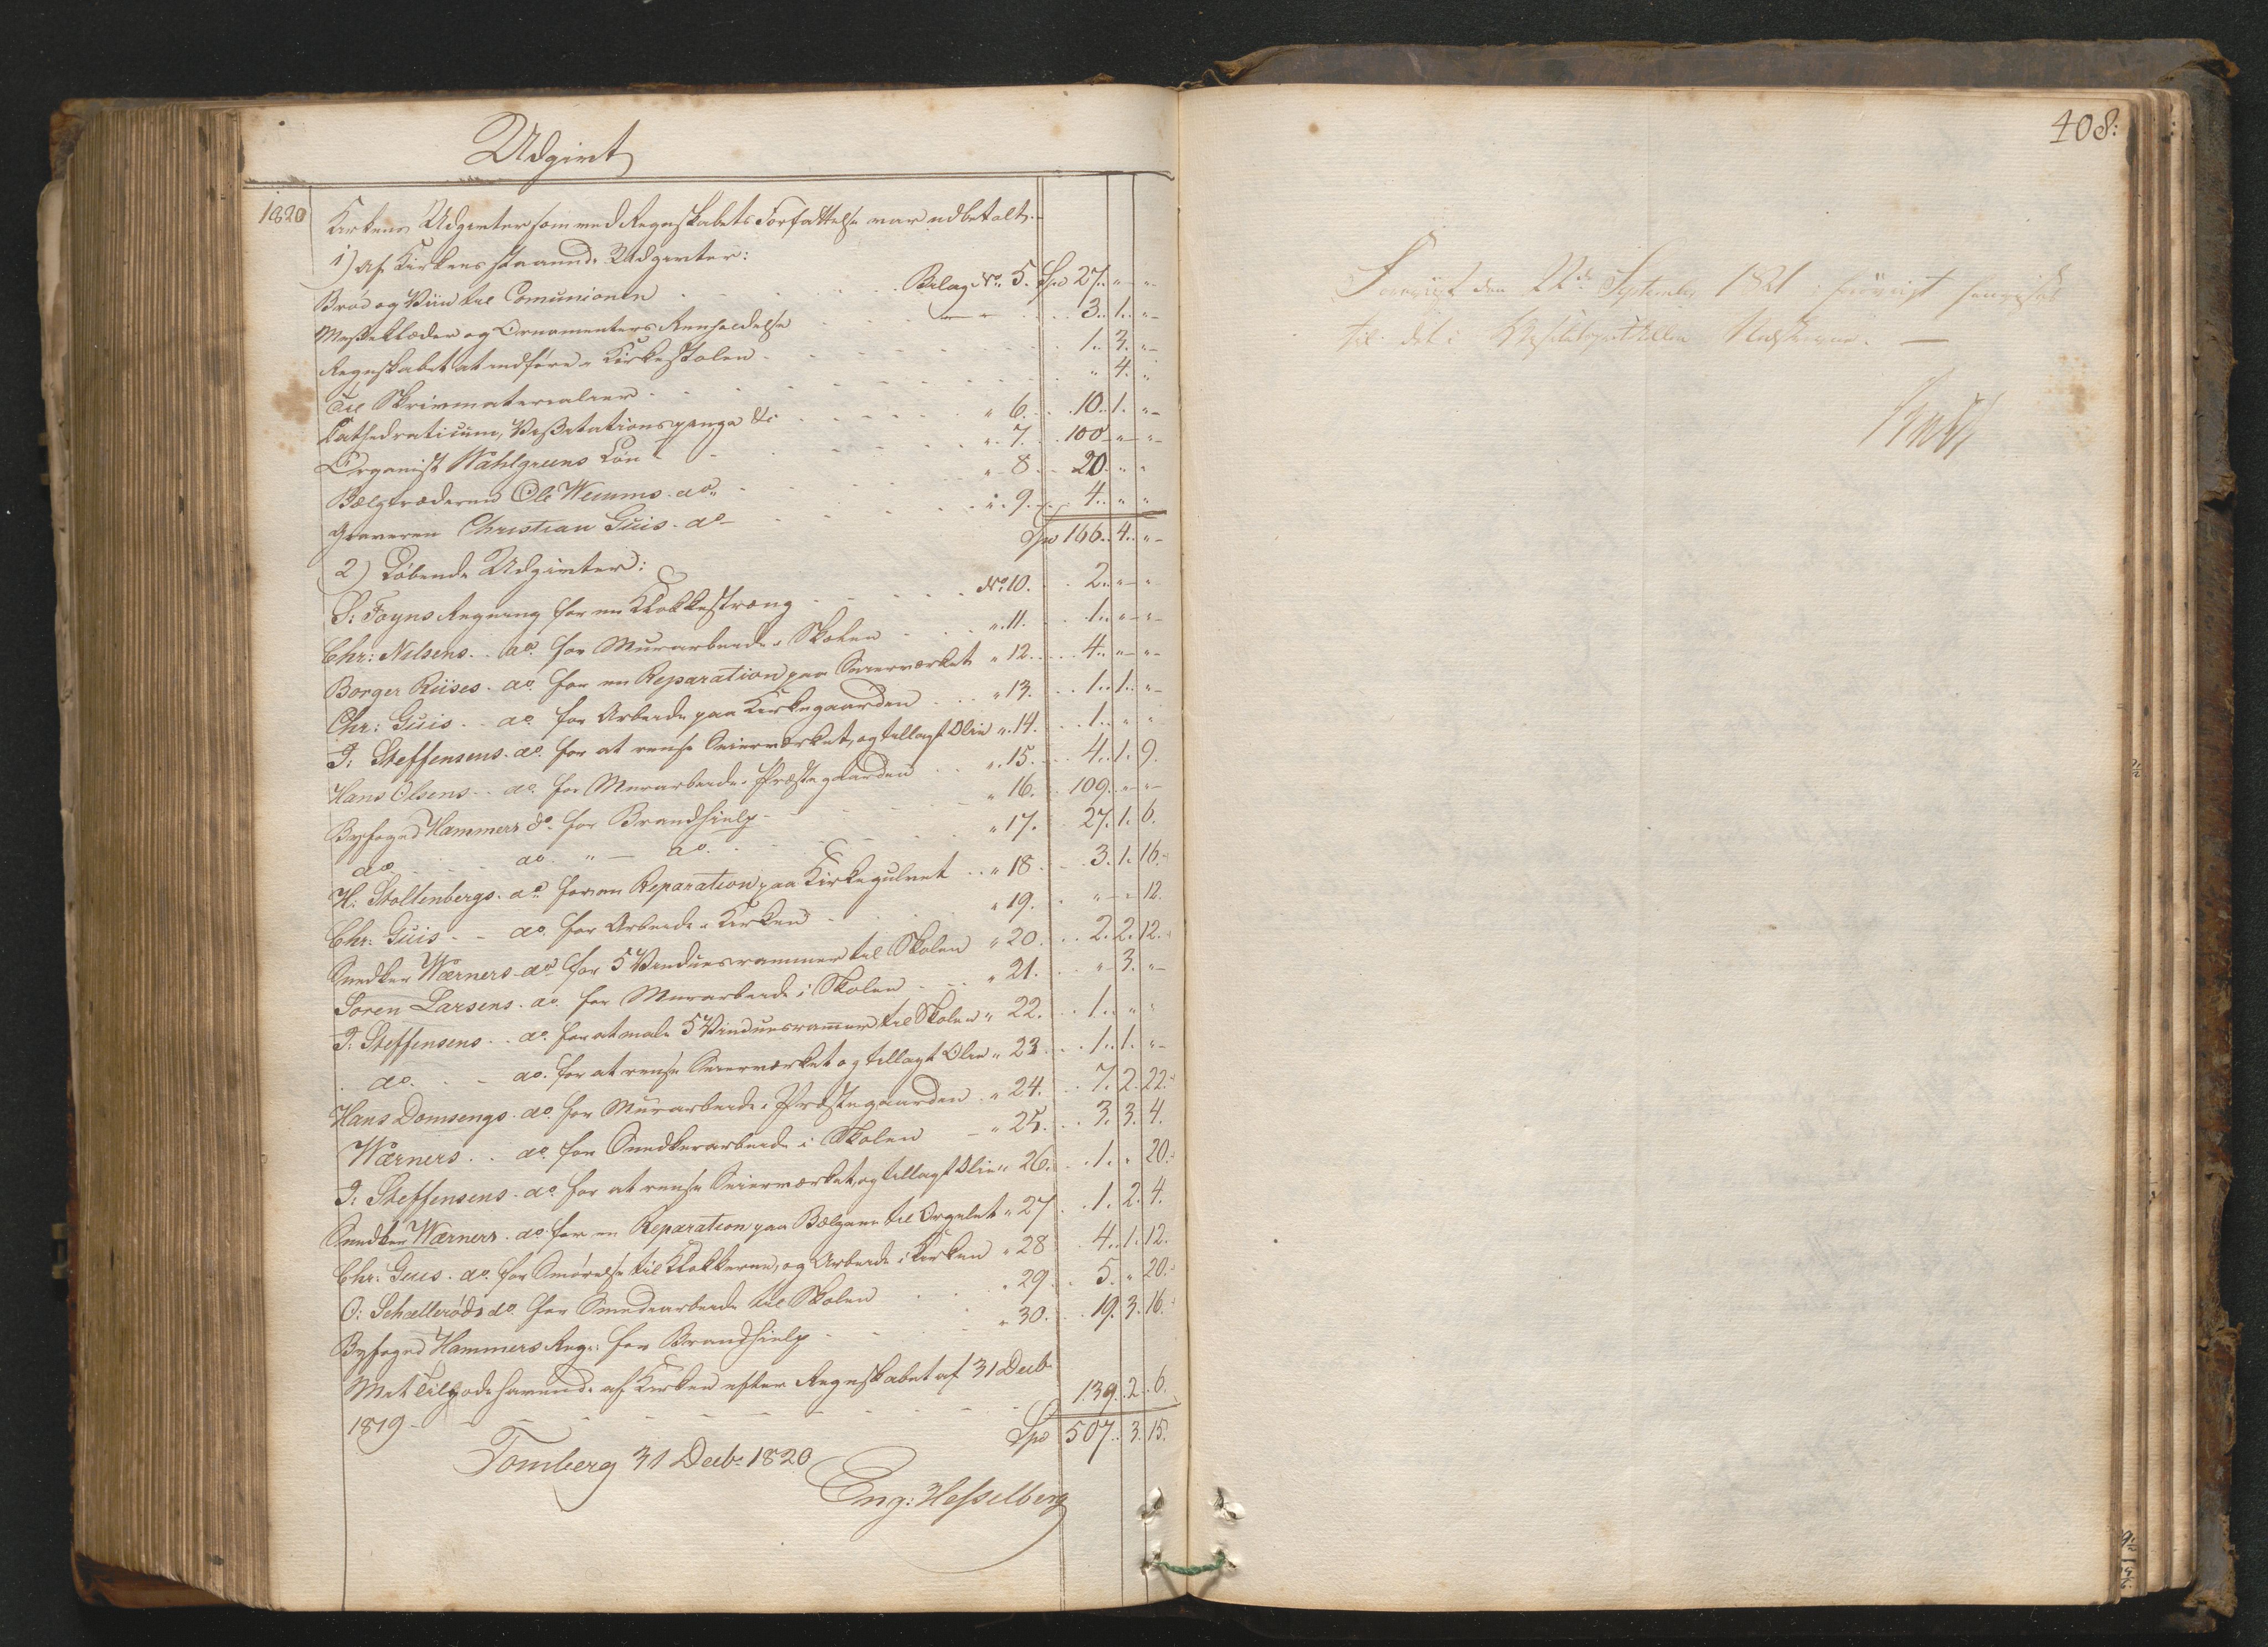 Udgivt
1820 Kirkens Udgivter som med Regnskabets Forfattelse var udbetalt.
1) Af Kirkens staaende Udgivter:
Brød og Viin til Comunionen Belag No. 5. Spd 27. " "
Messeklæder og Ornamenters Renholdelse — " 3. 1. "
Regnskabet at indføre i Kirkestolen 1. 3. "
Til Skrivmaterialier " 4. "
Cathedraticum, Visitationspenge &c " 6. 10. 1. "
Organist Wahlgreens Løn " 7. 100 " "
Bælgtræderen Ole Wemms do " 8. 20. " "
Graveren Christian Guis do " 9. 4. " "
Spd 166. 4. "
2) Løbende Udgivter:
S: Foyns Regning for en Klokkestræng No. 10. 2. " "
Chr: Nilsens do for Murarbeide i Skolen " 11. 1. " "
Borger Riises do for en Reparation paa Seierværket " 12. 4. " "
Chr: Guis do for Arbeide paa Kirkegaarden " 13. 1. 1. "
J. Steffensens do for at rense Seierværket, og tillagt Olie " 14. 1. " "
Hans Olsens do for Murarbeide i Præstegaarden " 15. 4. 1. 9.
Byfoged Hammers do for Brandhielp " 16. 109. " "
do do " — do " 17. 27. 1. 6.
H: Stoltenbergs do for en Reparation paa Kirkegulvet " 18 3. 1. 16.
Chr: Guis do for Arbeide i Kirken " 19. " " 12.
Snedker Wærners do for 5 Vinduesrammer til Skolen " 20. 2. 2. 12.
Søren Larsens do for Murarbeide i Skolen " 21. " 3. "
J: Steffensens do for at male 5 Vinduesrammer til Skolen " 22. 1. " "
do do for at rense Seierværket og tillagt Olie " 23 1. 1. "
Hans Domsengs do for Murarbeide i Præstegaarden " 24. 7. 2. 22.
Wærners do for Snedkerarbeide i Skolen " 25. 3. 3. 4.
J: Steffensens do for at rense Seierværket, og tillagt Olie " 26. 1. " 20.
Snedker Wærners do for en Reparation paa Bælgene til Orgelet " 27 1. 2. 4.
Chr: Guis do for Smørelse til Klokkerne, og Arbeide i Kirken " 28 4. 1. 12.
O: Schallerøds do for Smedearbeide til Skolen " 29. 5. " 20.
Byfoged Hammers Reg: for Brandhielp " 30. 19. 3. 16.
Mit Tilgodehavende af Kirken efter Regnskabet af 31 Decb
1819 139. 2. 6.
Spd 507. 3. 15.
Tonsberg 31 Decbr 1820
Eng: Hesselberg
408:
den 22de September 1821
til det i